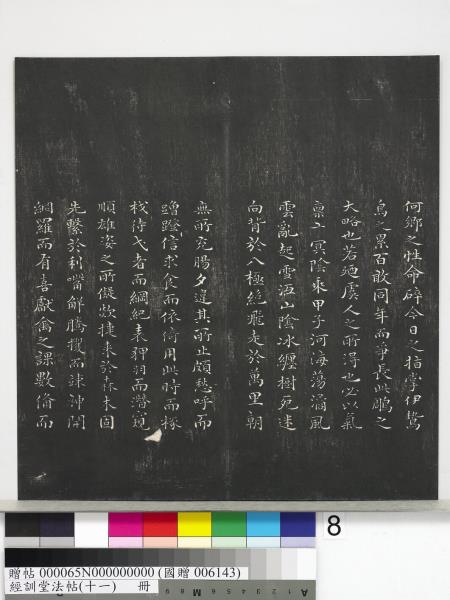 何鄉之性命碎今日之指掌伊鷙
鳥之累百敢同年而爭長此鵰之
大略也若廼虞人之所得也必以氣
稟玄冥陰乘甲子河海蕩潏風
雲亂起雪沍山陰冰纏樹死迷
向背於八極絕飛走於萬里朝
無所充腸夕違其所止頗愁呼而
蹭蹬信求食而依倚用此時而椓
杙待弋者而綱紀表狎羽而潛窺
順雄姿之所儗欻捷來於森木固
先繫於利觜解騰攫而竦神開
網羅而有喜獻禽之課數備而
8
贈帖 000065N000000000 (國贈 006143)
經訓堂法帖(十一) 冊